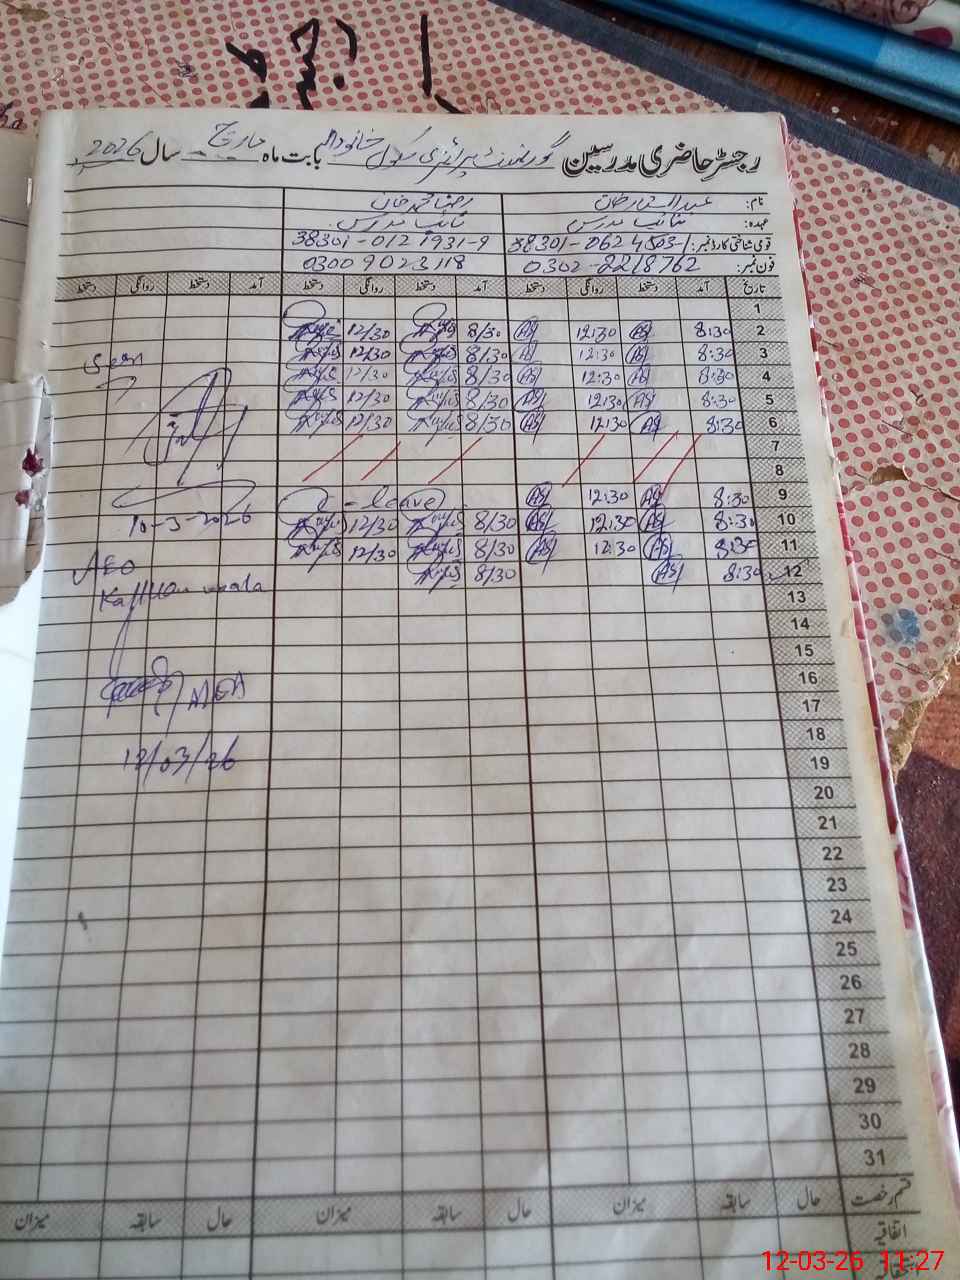 رجسٹر حاضری مدرسین گورنمنٹ پرائمری سکول خانودالہ بابت ماہ مارچ سال 2026
نام: عبدالستار خان
عہدہ: نائب مدرس نائب مدرس
قومی شناختی کارڈ نمبر: 38301-0624503-1 38301-0121931-9
فون نمبر: 0302-2218762 0300 9023118
تاریخ آمد دستخط روانگی دستخط آمد دستخط روانگی دستخط آمد دستخط روانگی دستخط
1
2 8:30 12:30 8/30 12/30
3 8:30 12:30 8/30 12/30
4 8:30 12:30 8/30 12/30
5 8:30 12:30 8/30 12/30
6 8:30 12:30 8/30 12/30
7
8
9 8:30 12:30 leave
10 8:30 12:30 8/30 12/30
11 8:30 12:30 8/30 12/30
12 8:30 8/30
13
14
15
16
17
18
19
20
21
22
23
24
25
26
27
28
29
30
31
Seen
10-3-2026
AEO
MEA
12/03/26
قسم رخصت حال سابقہ میزان حال سابقہ میزان حال سابقہ میزان
اتفاقیہ
12-03-26 11:27